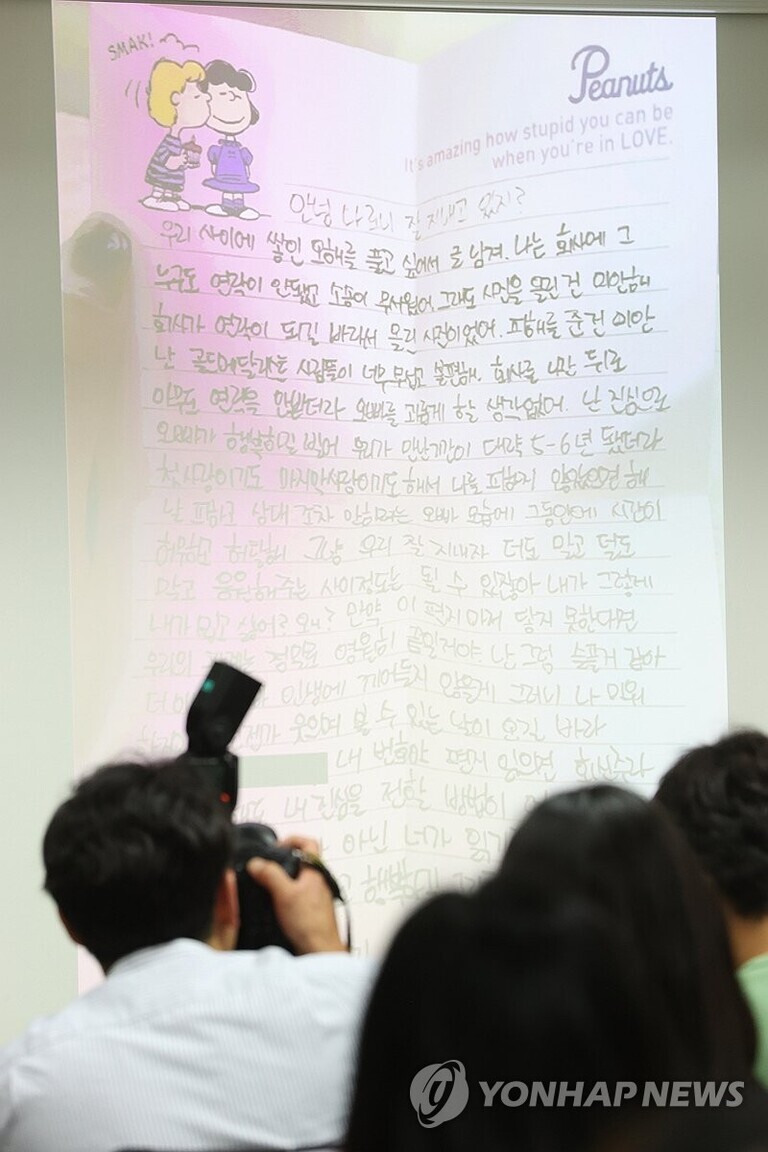 SMAK!
Peanuts
It's amazing how stupid you can be
when you're in LOVE.
안녕 나 잘 지내고 있지?
우리 사이에 쌓인 오해를 풀고 싶어서 글 남겨. 나는 회사에 그
누구도 연락이 안됐고 소송이 무서웠어. 그래도 사진을 올린 건 미안해
회사가 연락이 되길 바라서 올린 사진이었어. 피해를 준건 미안
난 골드메달리스트 사람들이 너무 무섭고 불편해. 회사를 나간 뒤로
아무런 연락을 안받더라 오빠를 괴롭게 할 생각없어. 난 진심으로
오빠가 행복하길 빌어 우리가 만난기간이 대략 5-6년 됐더라
첫사랑이기도 마지막사랑이기도 해서 나를 피하지 않았으면 해
날 피하고 상대 조차 안하려는 오빠 모습에 그동안에 시간이
허무하고 허탈해 그냥 우리 잘 지내자 더도 말고 덜도
말고 응원해주는 사이정도는 될 수 있잖아 내가 그렇게
내가 밉고 싫어? 왜? 만약 이 편지마저 닿지 못한다면
우리의 관계는 정말로 영원히 끝일거야. 난 그럼 슬플거 같아
더 인생에 끼어들지 않을게 그러니 나 미워
웃으며 볼 수 있는 날이 오길 바라
내 번호야 편지 읽으면 회신주라
내 진심을 전할 방법이
아닌 너가 읽기
행복
YONHAP NEWS